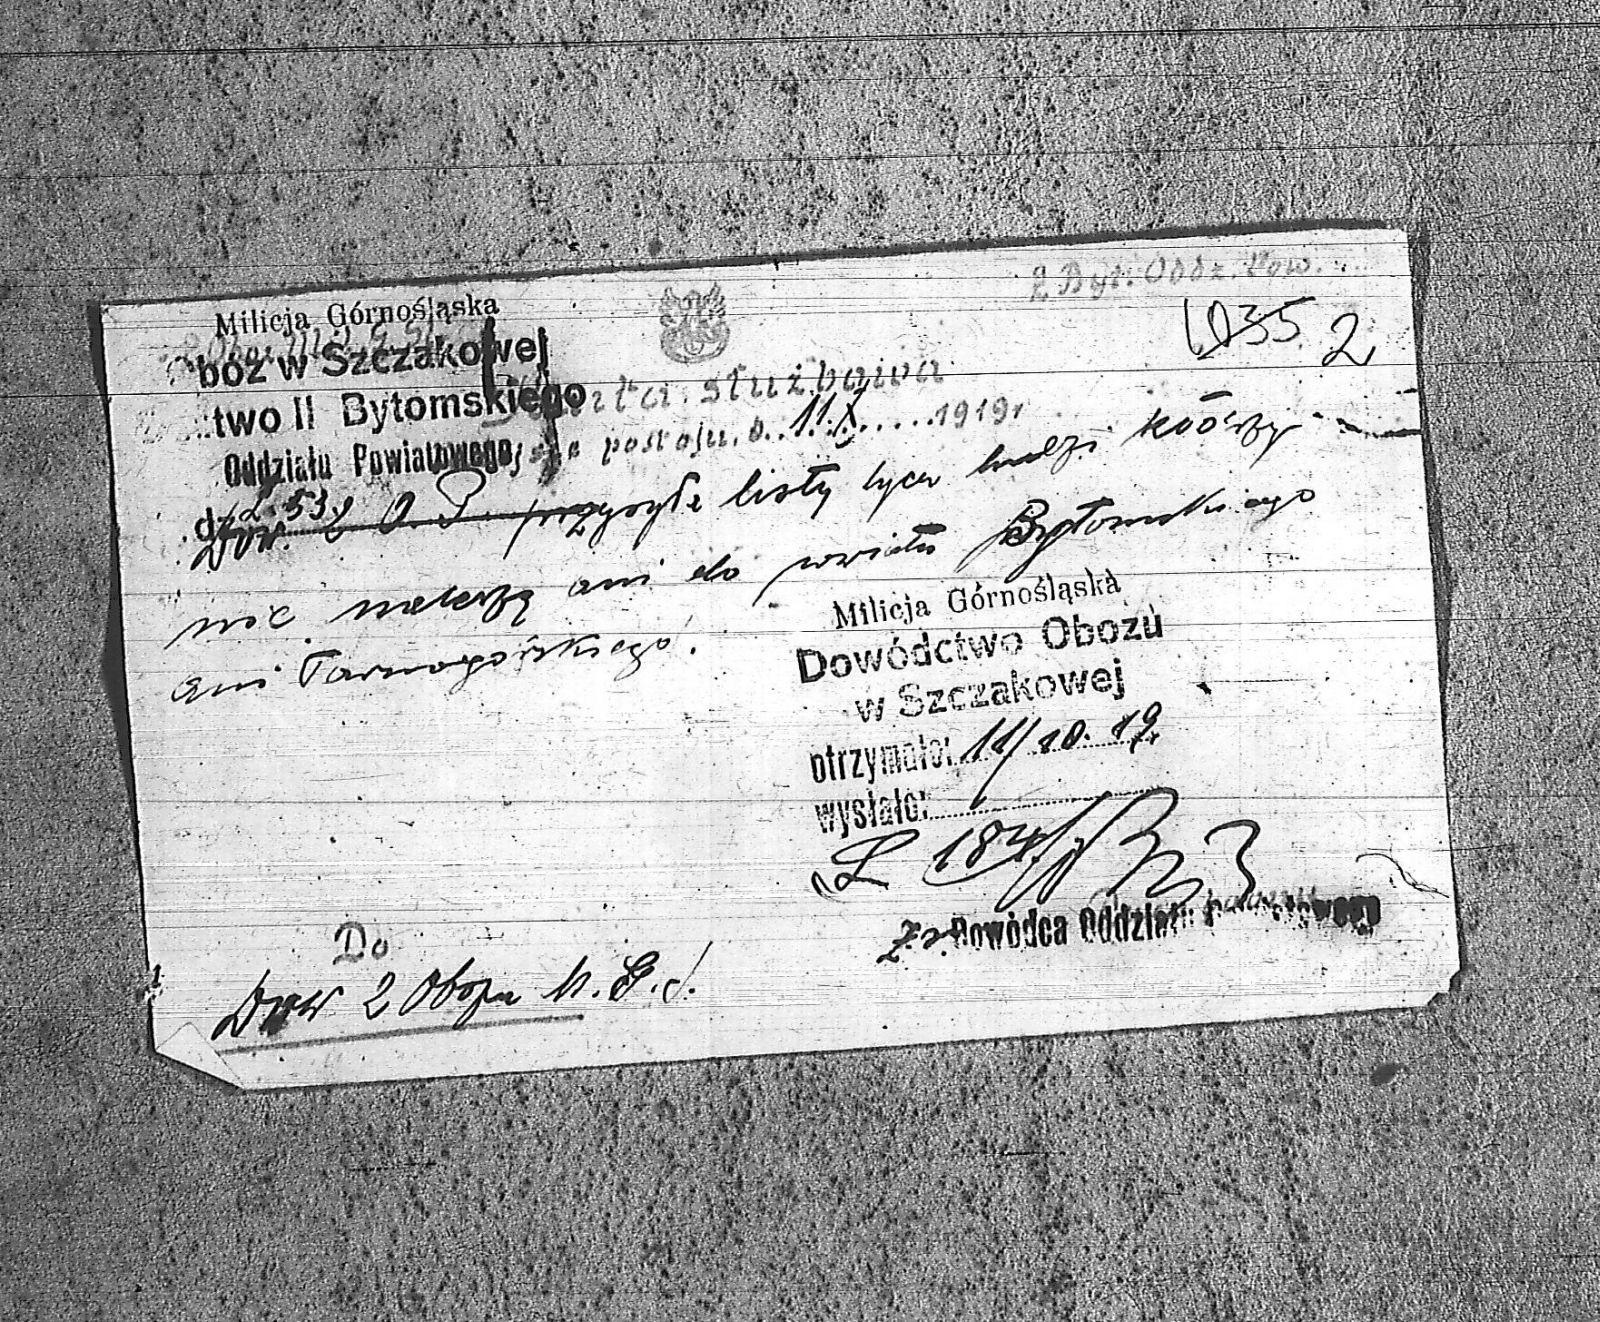 2 Byt. Oddz. Pow.
Milicja Górnośląska
1035 2
bóz w Szczakowej
służbowa
two II Bytomskiego
Oddziału Powiatowego
postoju d. 11.X 1919r
dz. L. 53
Dow. 2 O. P. przysyła listy tych ludzi którzy
nie należą ani do powiatu Bytomskiego
ani Tarnogórskiego.
Milicja Górnośląska
Dowództwo Obozu
w Szczakowej
otrzymało: 11/10.19.
wysłało:
L 184
Dowódca Oddziału
Do
Dow 2 Obozu M. G. S.